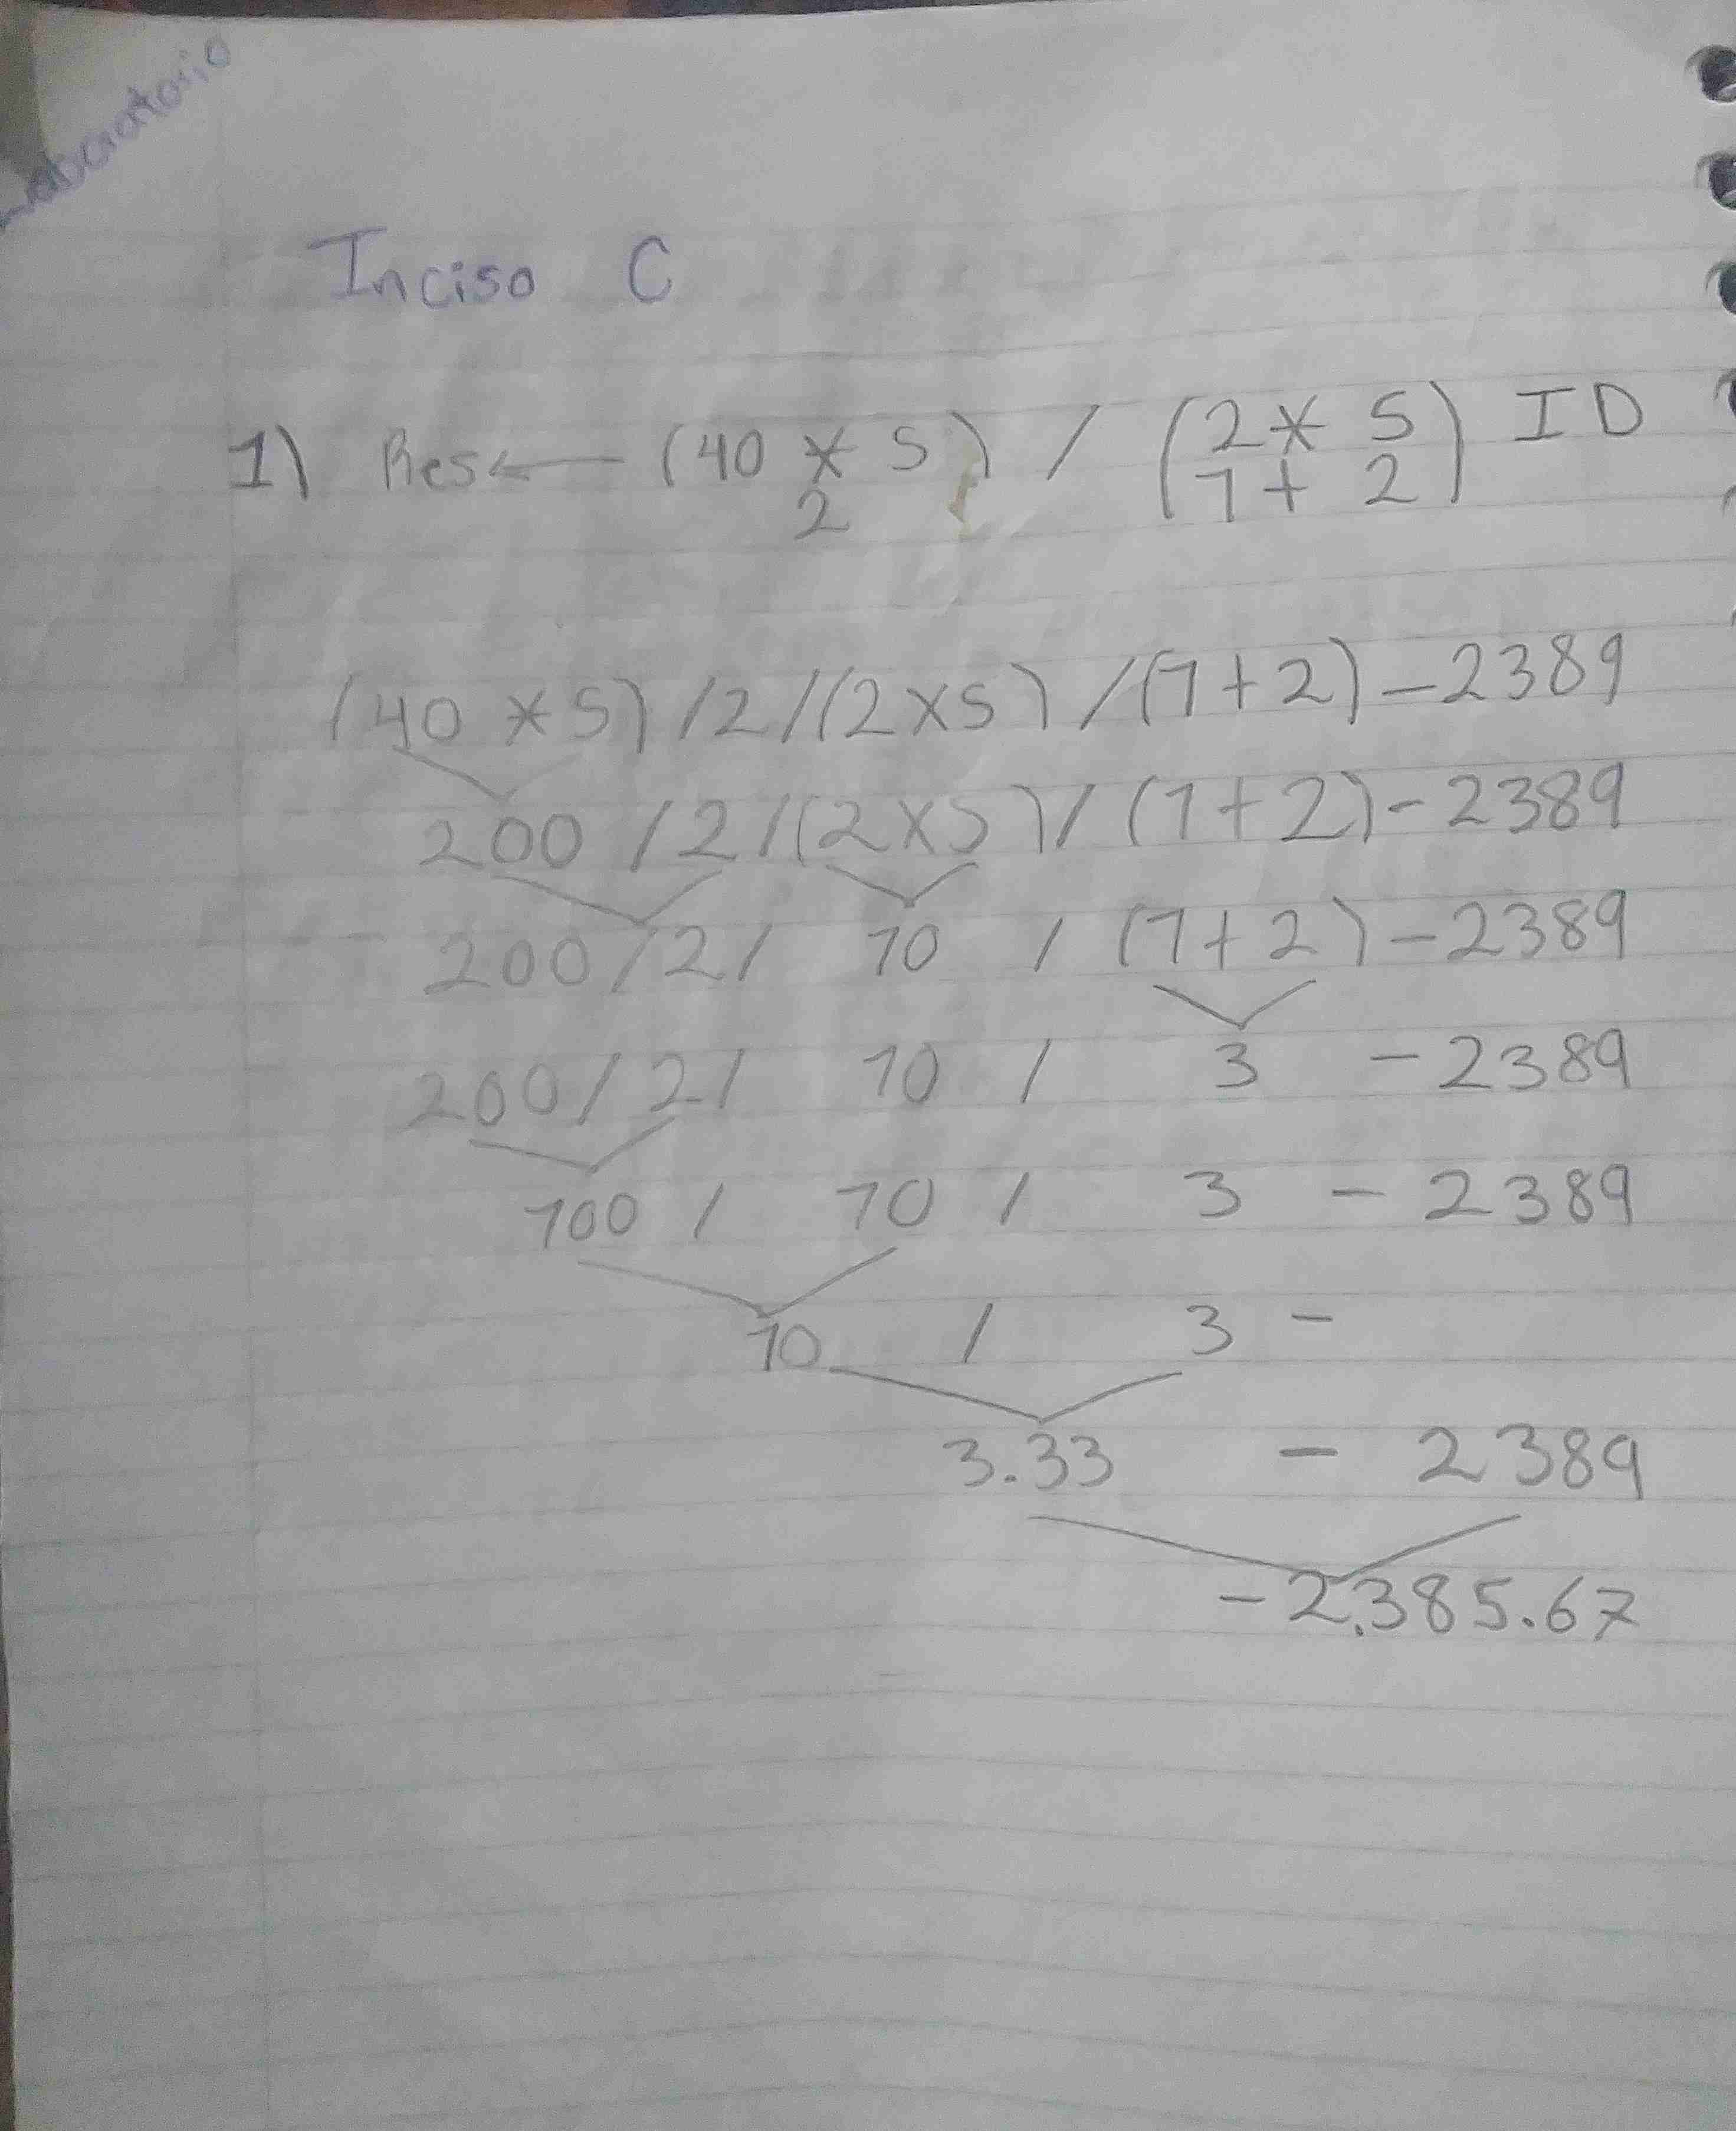 Laboratorio
Inciso C
1) Res ← (40 * 5) / (2 * 5) ID
2 1 + 2
(40 * 5) / 2 / (2 x 5) / (1 + 2) - 2389
200 / 2 / (2 x 5) / (1 + 2) - 2389
200 / 2 / 10 / (1 + 2) - 2389
200 / 2 / 10 / 3 - 2389
100 / 10 / 3 - 2389
10 / 3 -
3.33 - 2389
-2,385.67